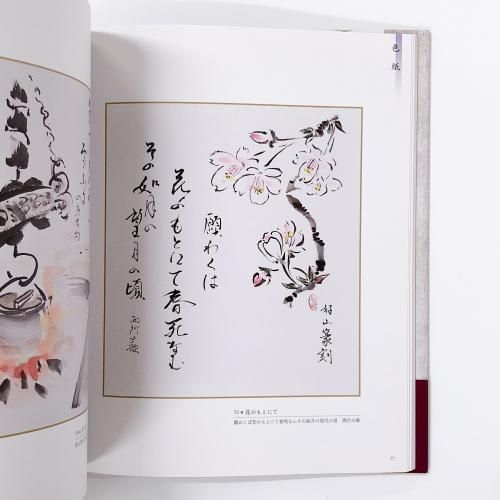 色紙
願わくは
花のもとにて春死なむ
その如月の望月の頃
西行歌
好山篆刻
花のもとにて
願わくば花のもとにて春死なんその如月の望月の頃　西行の歌
77